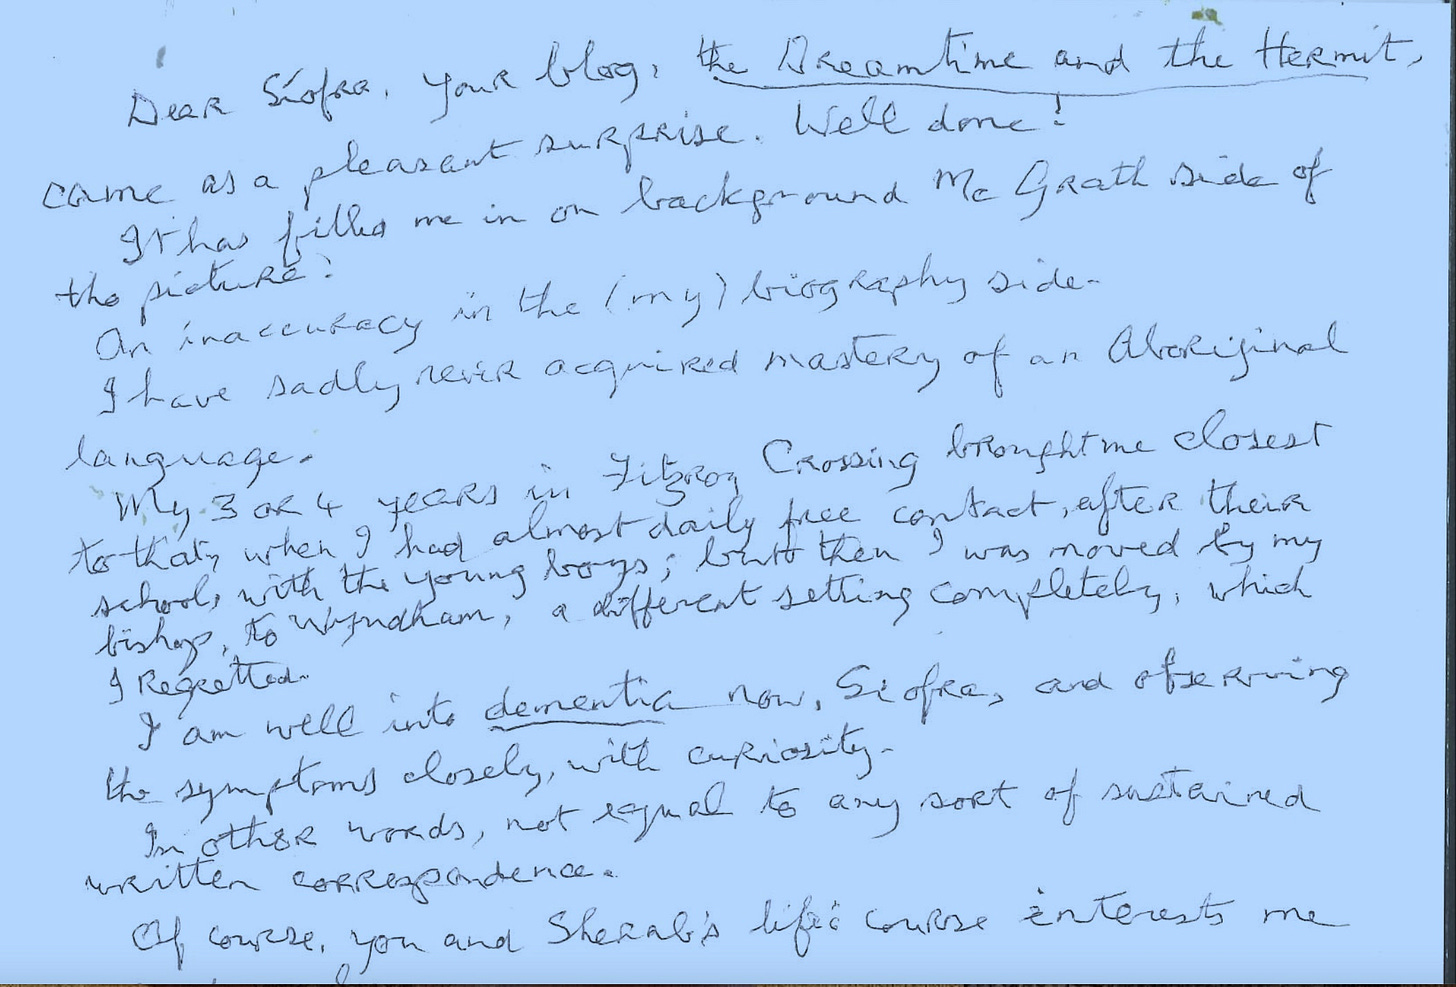 Dear Síofra, your blog, the Dreamtime and the Hermit,
came as a pleasant surprise. Well done!
It has filled me in on background McGrath side of
the picture!
An inaccuracy in the (my) biography side.
I have sadly never acquired mastery of an Aboriginal
language.
My 3 or 4 years in Fitzroy Crossing brought me closest
to that, when I had almost daily free contact, after their
school, with the young boys; but then I was moved by my
bishop, to Wyndham, a different setting completely, which
I regretted.
I am well into dementia now, Siofra, and observing
the symptoms closely, with curiosity.
In other words, not equal to any sort of sustained
written correspondence.
Of course, you and Sherab's life: course interests me